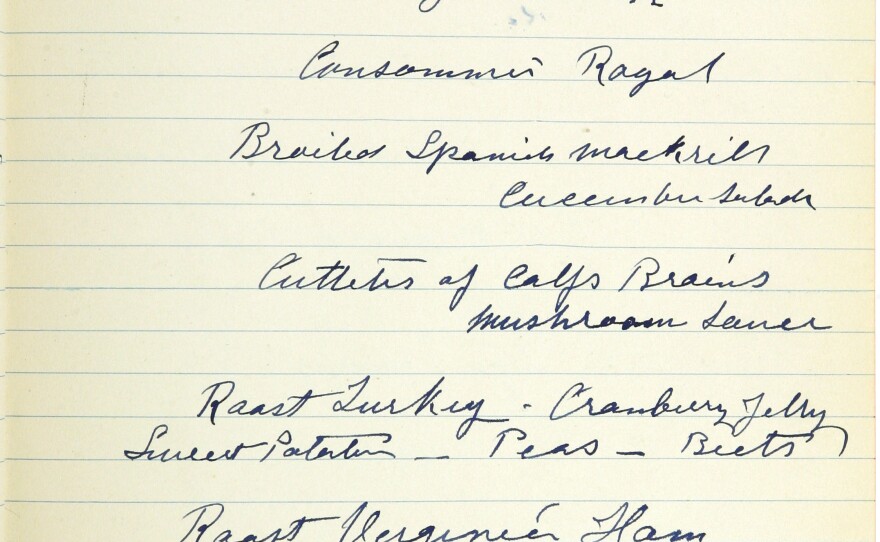 Consommé Royal
Broiled Spanish Mackrils
Cucumber Salade
Cutletes of Calfs Brains
Mushroom Sauce
Roast Turkey - Cranbury Jelly
Sweet Potatoes - Peas - Beets
Roast Verginia Ham